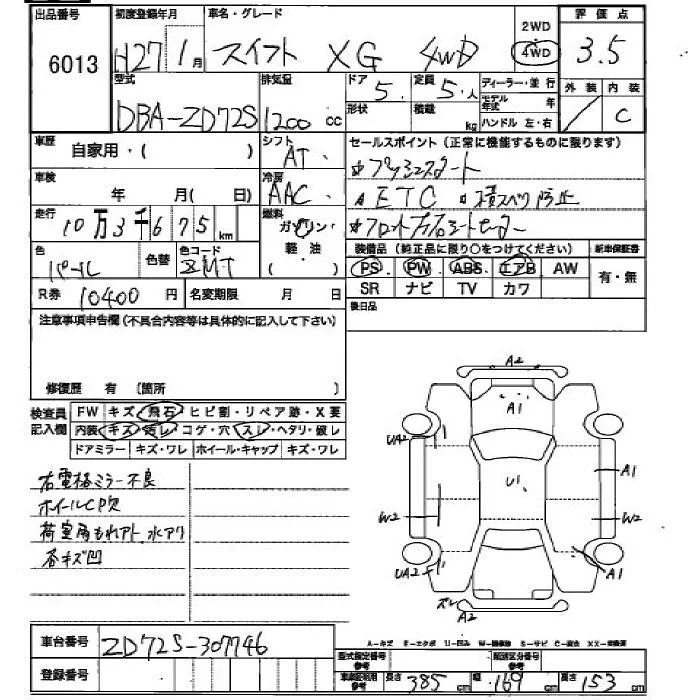 出品番号 初度登録年月 車名・グレード 2WD 評価点
6013 H27 1月 スイフト XG 4WD 4WD 3.5
型式 排気量 ドア 定員 ディーラー・並行 外装 内装
DBA-ZD72S 1200 cc 5 5人 モデル年式 年 / C
形状 積載 kg ハンドル 左・右
車歴 自家用・( ) シフト AT セールスポイント(正常に機能するものに限ります)
車検 年 月(日) 冷房 AAC *プッシュスタート
*ETC *横スベリ防止
走行 10万3千675km 燃料 ガソリン・軽油( ) *フロント左右シートヒーター
色 パール 色替 色コード ZMT 装備品(純正品に限り○をつけてください) 新車保証書
PS PW ABS エアB AW 有・無
R券 10400円 名変期限 月 日 SR ナビ TV カワ
注意事項申告欄(不具合内容等は具体的に記入して下さい) 後日品
修復歴 有 (箇所 )
検査員記入欄 FW キズ・飛石・ヒビ割・リペア跡・X要
内装 キズ・汚レ・コゲ・穴・スレ・ヘタリ・破レ
ドアミラー キズ・ワレ ホイール・キャップ キズ・ワレ
右電格ミラー不良
ホイールCP欠
荷室角もれアト 水アカ
各キズ凹
A2
A1
UA2
A1
U1
W2
W2
UA2
A1
ズレ
A2
A-キズ E-エクボ U-凹み W-補修跡 S-サビ C-腐食 XX-交換済
車台番号 ZD72S-307746
登録番号
型式指定番号 参考 類別区分番号 参考
車車証明用 参考 長さ 385cm 幅 169cm 高さ 153cm